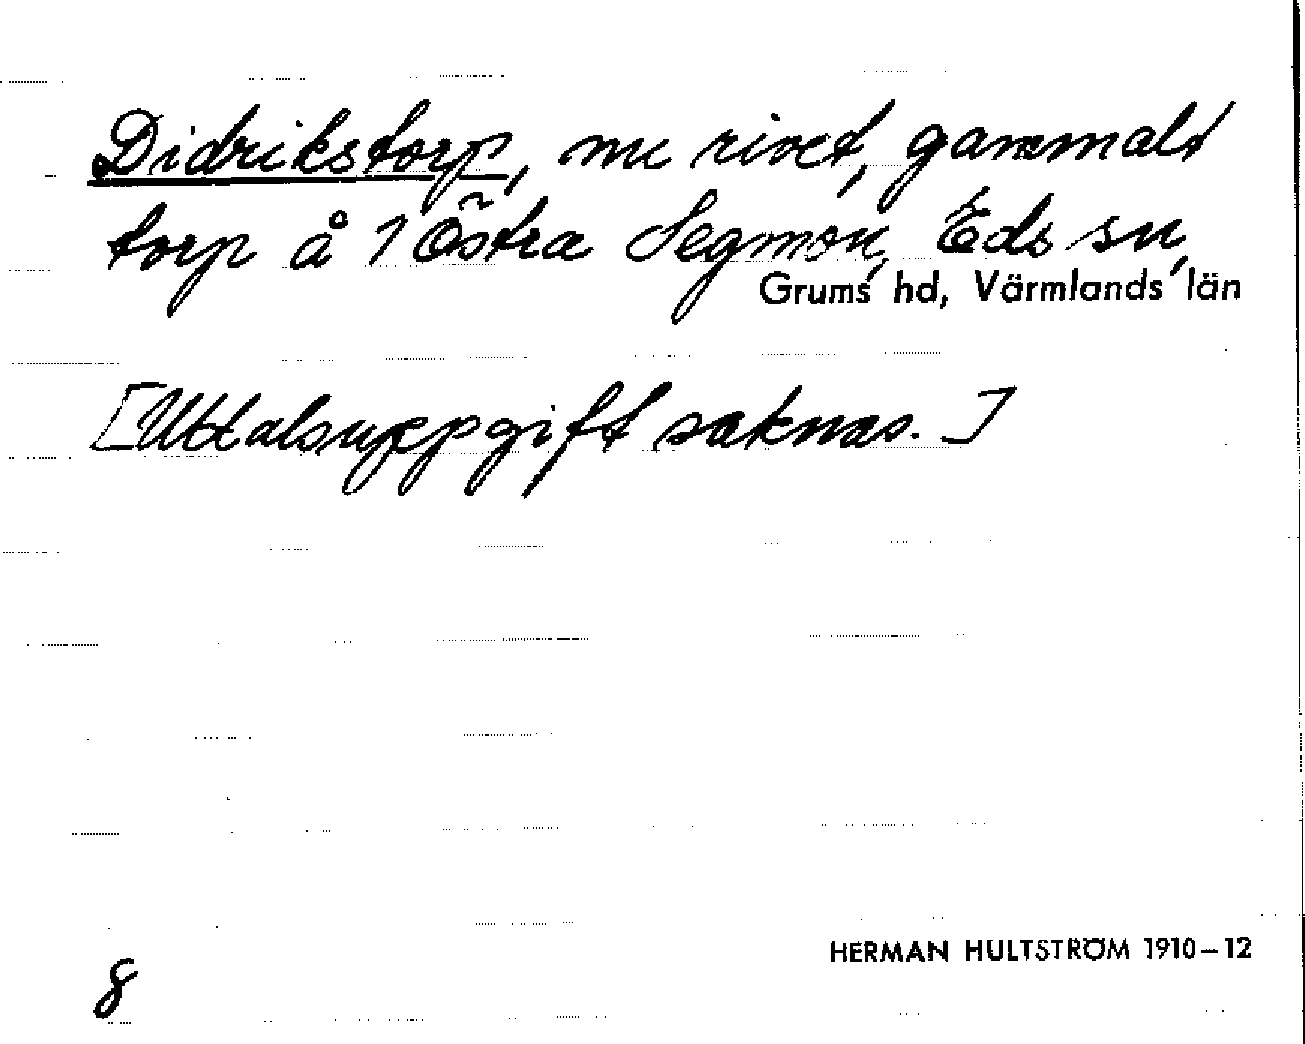 Didrikstorp, nu rivet, gammalt
torp å 1 Östra Segmon, Eds sn,
Grums hd, Värmlands län
[Uttalsuppgift saknas.]
HERMAN HULTSTRÖM 1910–12
8